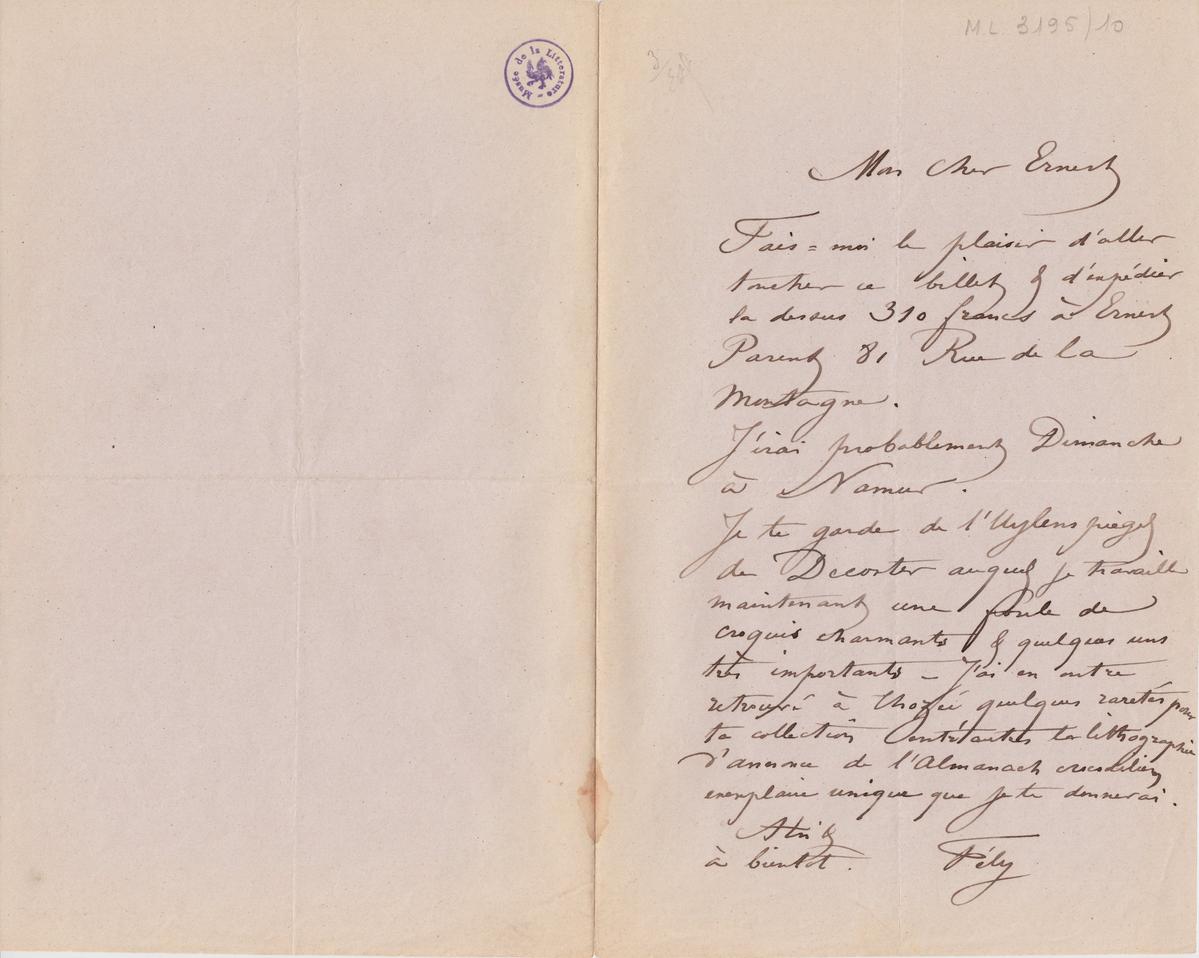 M L 3195/10
Musée de la Littérature -
Mon cher Ernest
Fais=moi le plaisir d'aller
toucher ce billet & d'expédier
la dessus 310 francs à Ernest
Parent 81 Rue de la
Montagne.
J'irai probablement Dimanche
à Namur.
Je te garde de l'Uylenspiegel
de Decoster auquel je travaille
maintenant une foule de
croquis charmants & quelques uns
très importants – J'ai en outre
retrouvé à Thozée quelques raretés pour
ta collection entr'autres la lithographie
d'annonce de l'Almanach crocodilien
exemplaire unique que je te donnerai.
à bientôt.
Fély